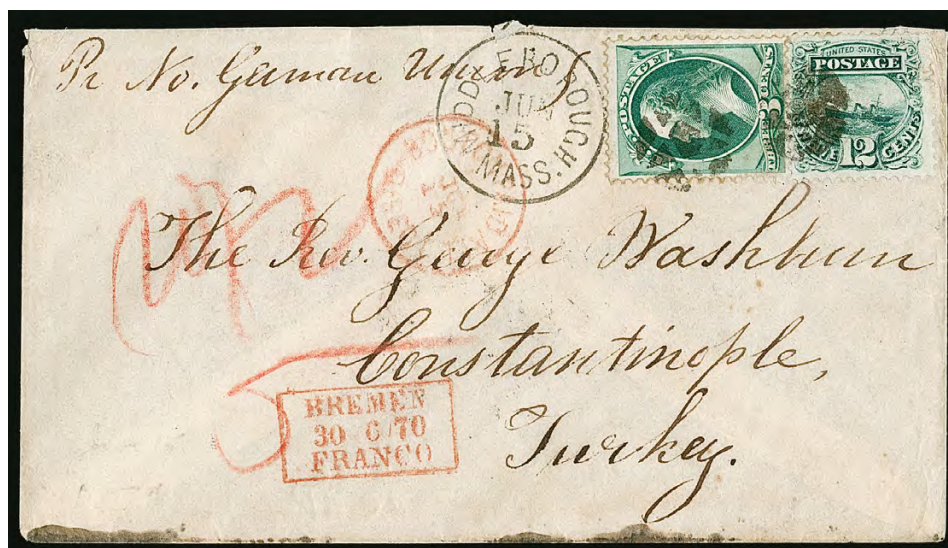 Pr No. German Union
MIDDLEBOROUGH
JUN
15
MASS.
POSTAGE
3
CENTS
UNITED STATES
POSTAGE
12
CENTS
The Rev. George Washburn
Constantinople,
Turkey.
BREMEN
30 6/70
FRANCO